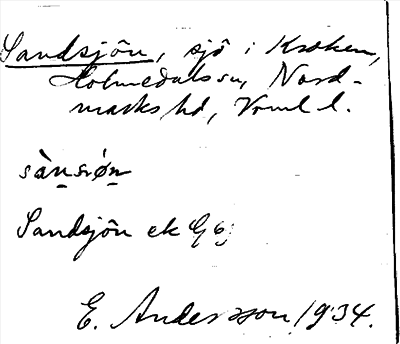 Sandsjön, sjö i Kroken,
Holmedals sn, Nord-
marks hd, Vrml l.
sàn̠sıøn̠
Sandsjön ek G6
E. Andersson 1934.